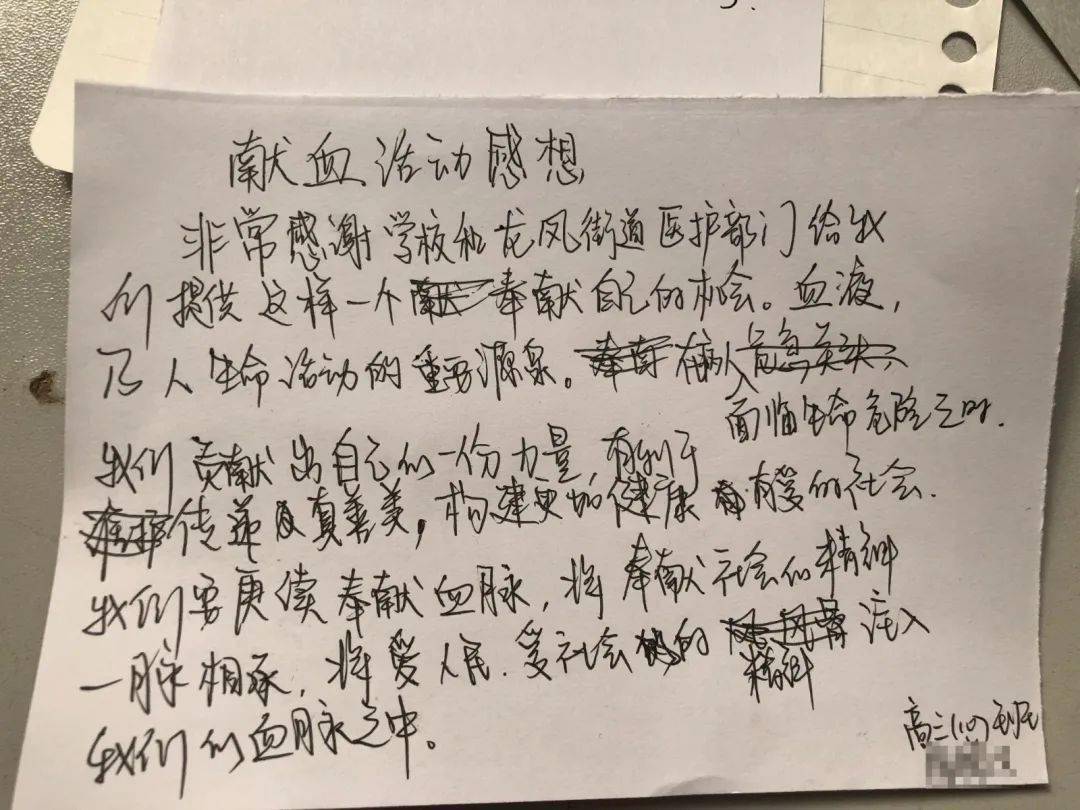 献血活动感想
非常感谢学校和龙凤街道医护部门给我
们提供这样一个奉献自己的机会。血液,
乃人生命活动的重要源泉。在病人
面临生命危险之时,
我们贡献出自己的一份力量,有利于
传递真善美,构建更加健康有爱的社会.
我们要赓续奉献血脉,将奉献社会的精神
一脉相承,将爱人民.爱社会的精神注入
我们的血脉之中。
高三 班